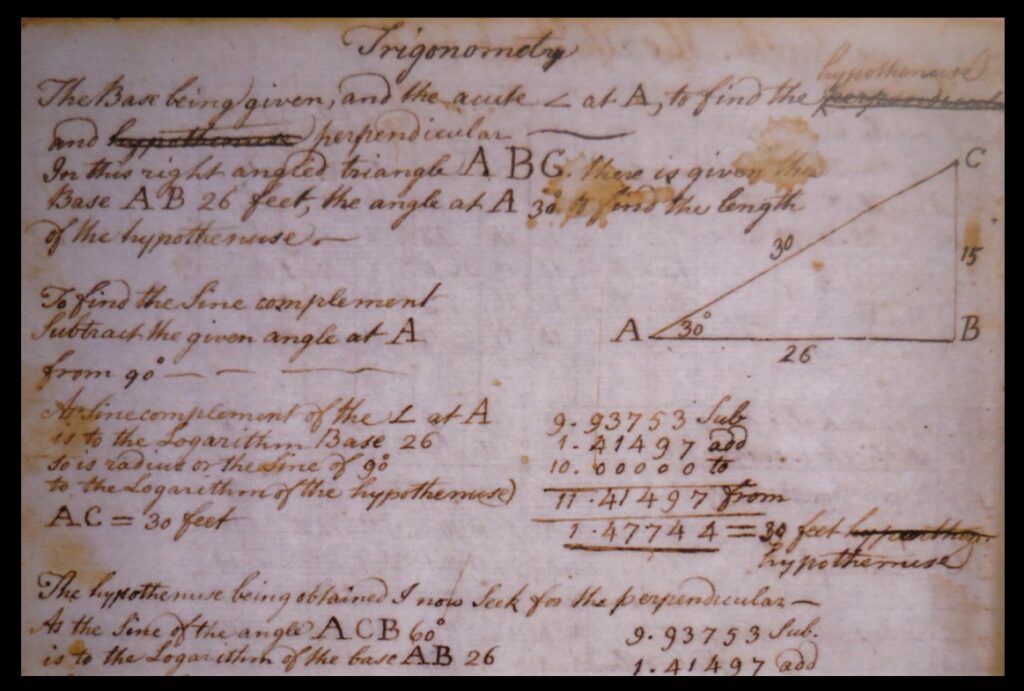 Trigonometry
hypothenuse
The Base being given, and the acute ∠ at A, to find the perpendicular
and hypothenuse perpendicular
In this right angled triangle ABC. there is given the
Base AB 26 feet, the angle at A 30° to find the length
of the hypothenuse.
C
30
15
A
30°
B
26
To find the Sine complement
Subtract the given angle at A
from 90°
As Sine complement of the ∠ at A 9.93753 Sub
is to the Logarithm Base 26 1.41497 add
so is radius or the Sine of 90° 10.00000 to
to the Logarithm of the hypothenuse) 11.41497 from
AC = 30 feet 1.47744 = 30 feet
hypothenuse
The hypothenuse being obtained I now Seek for the perpendicular
As the Sine of the angle ACB 60° 9.93753 Sub.
is to the Logarithm of the base AB 26 1.41497 add